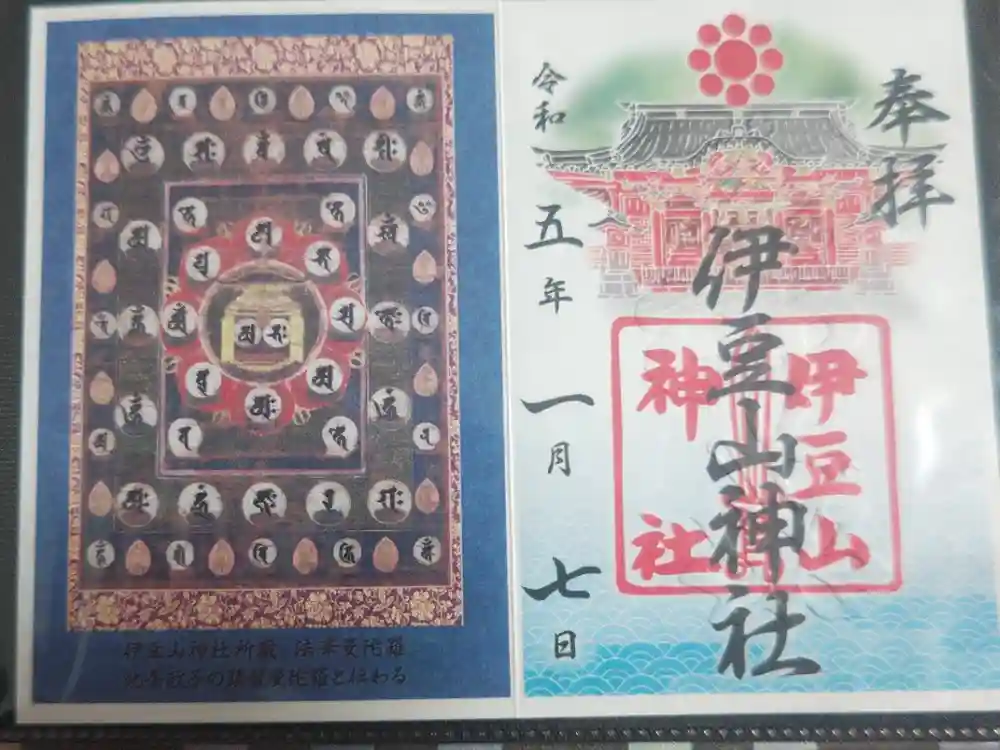 奉拝
伊豆山神社
伊豆山
神社
令和五年一月七日
伊豆山神社所蔵 法華曼陀羅
北条政子の頭髪曼陀羅と伝わる